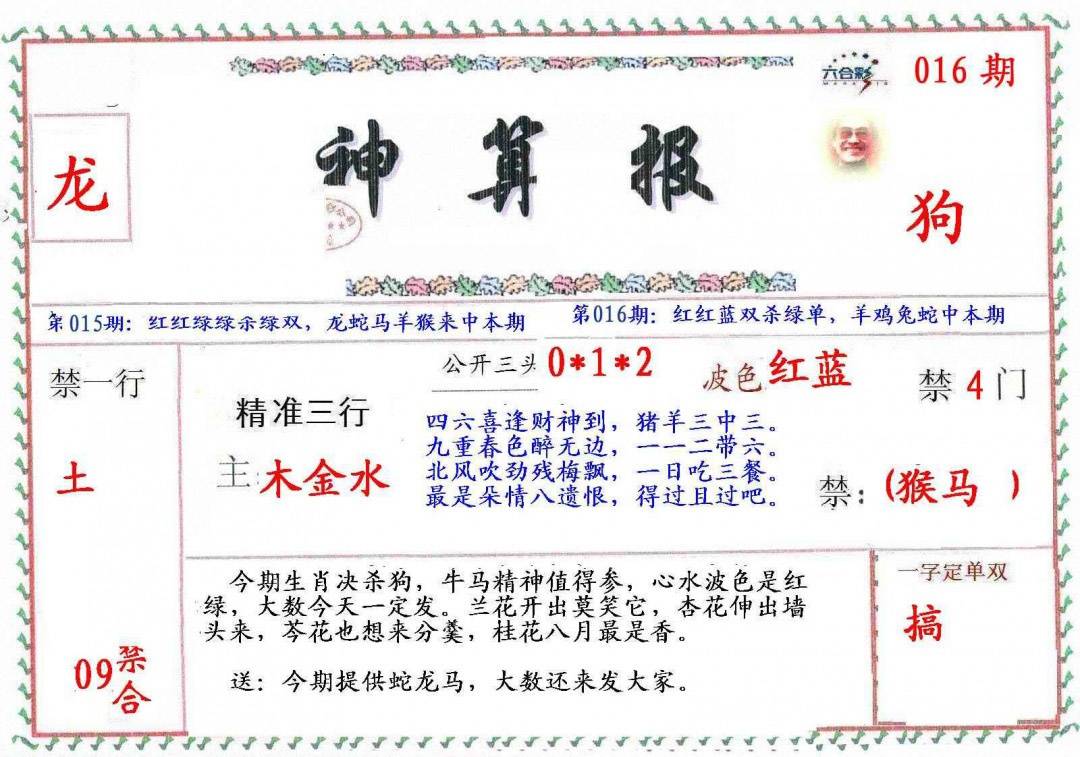 六合彩
016 期
神算报
龙
狗
第015期：红红绿绿杀绿双，龙蛇马羊猴来中本期
第016期：红红蓝双杀绿单，羊鸡兔蛇中本期
禁一行
土
09禁合
精准三行
主：木金水
公开三头 0*1*2
波色 红蓝
四六喜逢财神到，猪羊三中三。
九重春色醉无边，一一二带六。
北风吹劲残梅飘，一日吃三餐。
最是朵情八遗恨，得过且过吧。
禁 4 门
禁：(猴马 )
今期生肖决杀狗，牛马精神值得参，心水波色是红
绿，大数今天一定发。兰花开出莫笑它，杏花伸出墙
头来，芩花也想来分羹，桂花八月最是香。
送：今期提供蛇龙马，大数还来发大家。
一字定单双
搞